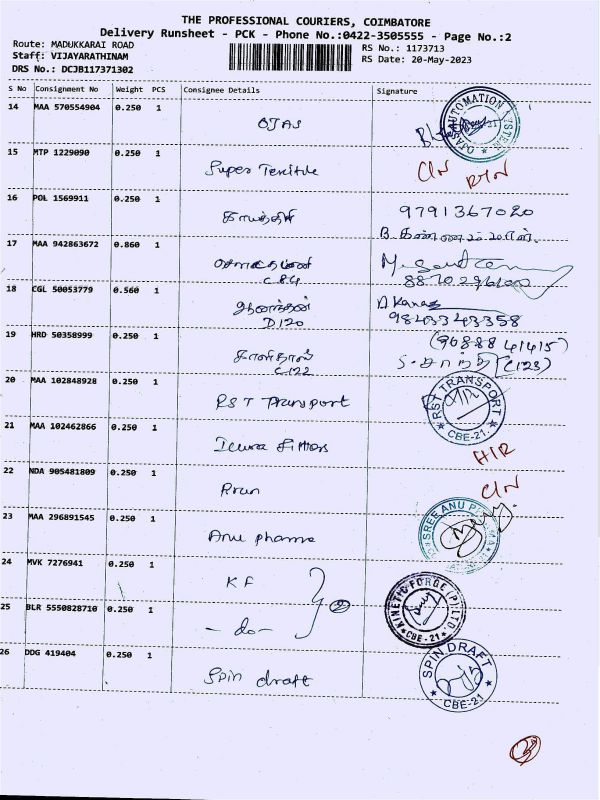 THE PROFESSIONAL COURIERS, COIMBATORE
Delivery Runsheet - PCK - Phone No.:0422-3505555 - Page No.:2
Route: MADUKKARAI ROAD
RS No.: 1173713
Staff: VIJAYARATHINAM
RS Date: 20-May-2023
DRS No.: DCJB117371302
S No Consignment No Weight PCS Consignee Details Signature
14 MAA 570554904 0.250 1 OJAS
15 MTP 1229090 0.250 1 Super Textile C/N
16 POL 1569911 0.250 1 காயத்ரி 9791367020
17 MAA 942863672 0.860 1
C84 8870296100
18 CGL 50053779 0.560 1 ஆனந்தன் Kanag
D120 9843343358
19 HRD 50358999 0.250 1 (96888 41415)
C122 (C123)
20 MAA 102848928 0.250 1 RST Transport RST TRANSPORT CBE-21.
21 MAA 102462866 0.250 1 H/R
22 NDA 905481809 0.250 1 C/N
23 MAA 296891545 0.250 1 Anu pharma SREE ANU
24 MVK 7276941 0.250 1 KF
25 BLR 5550828710 0.250 1 - do - 2 KINETIC FORGE (P) LTD. CBE-21
26 DDG 419404 0.250 1 Spin draft SPIN DRAFT CBE-21